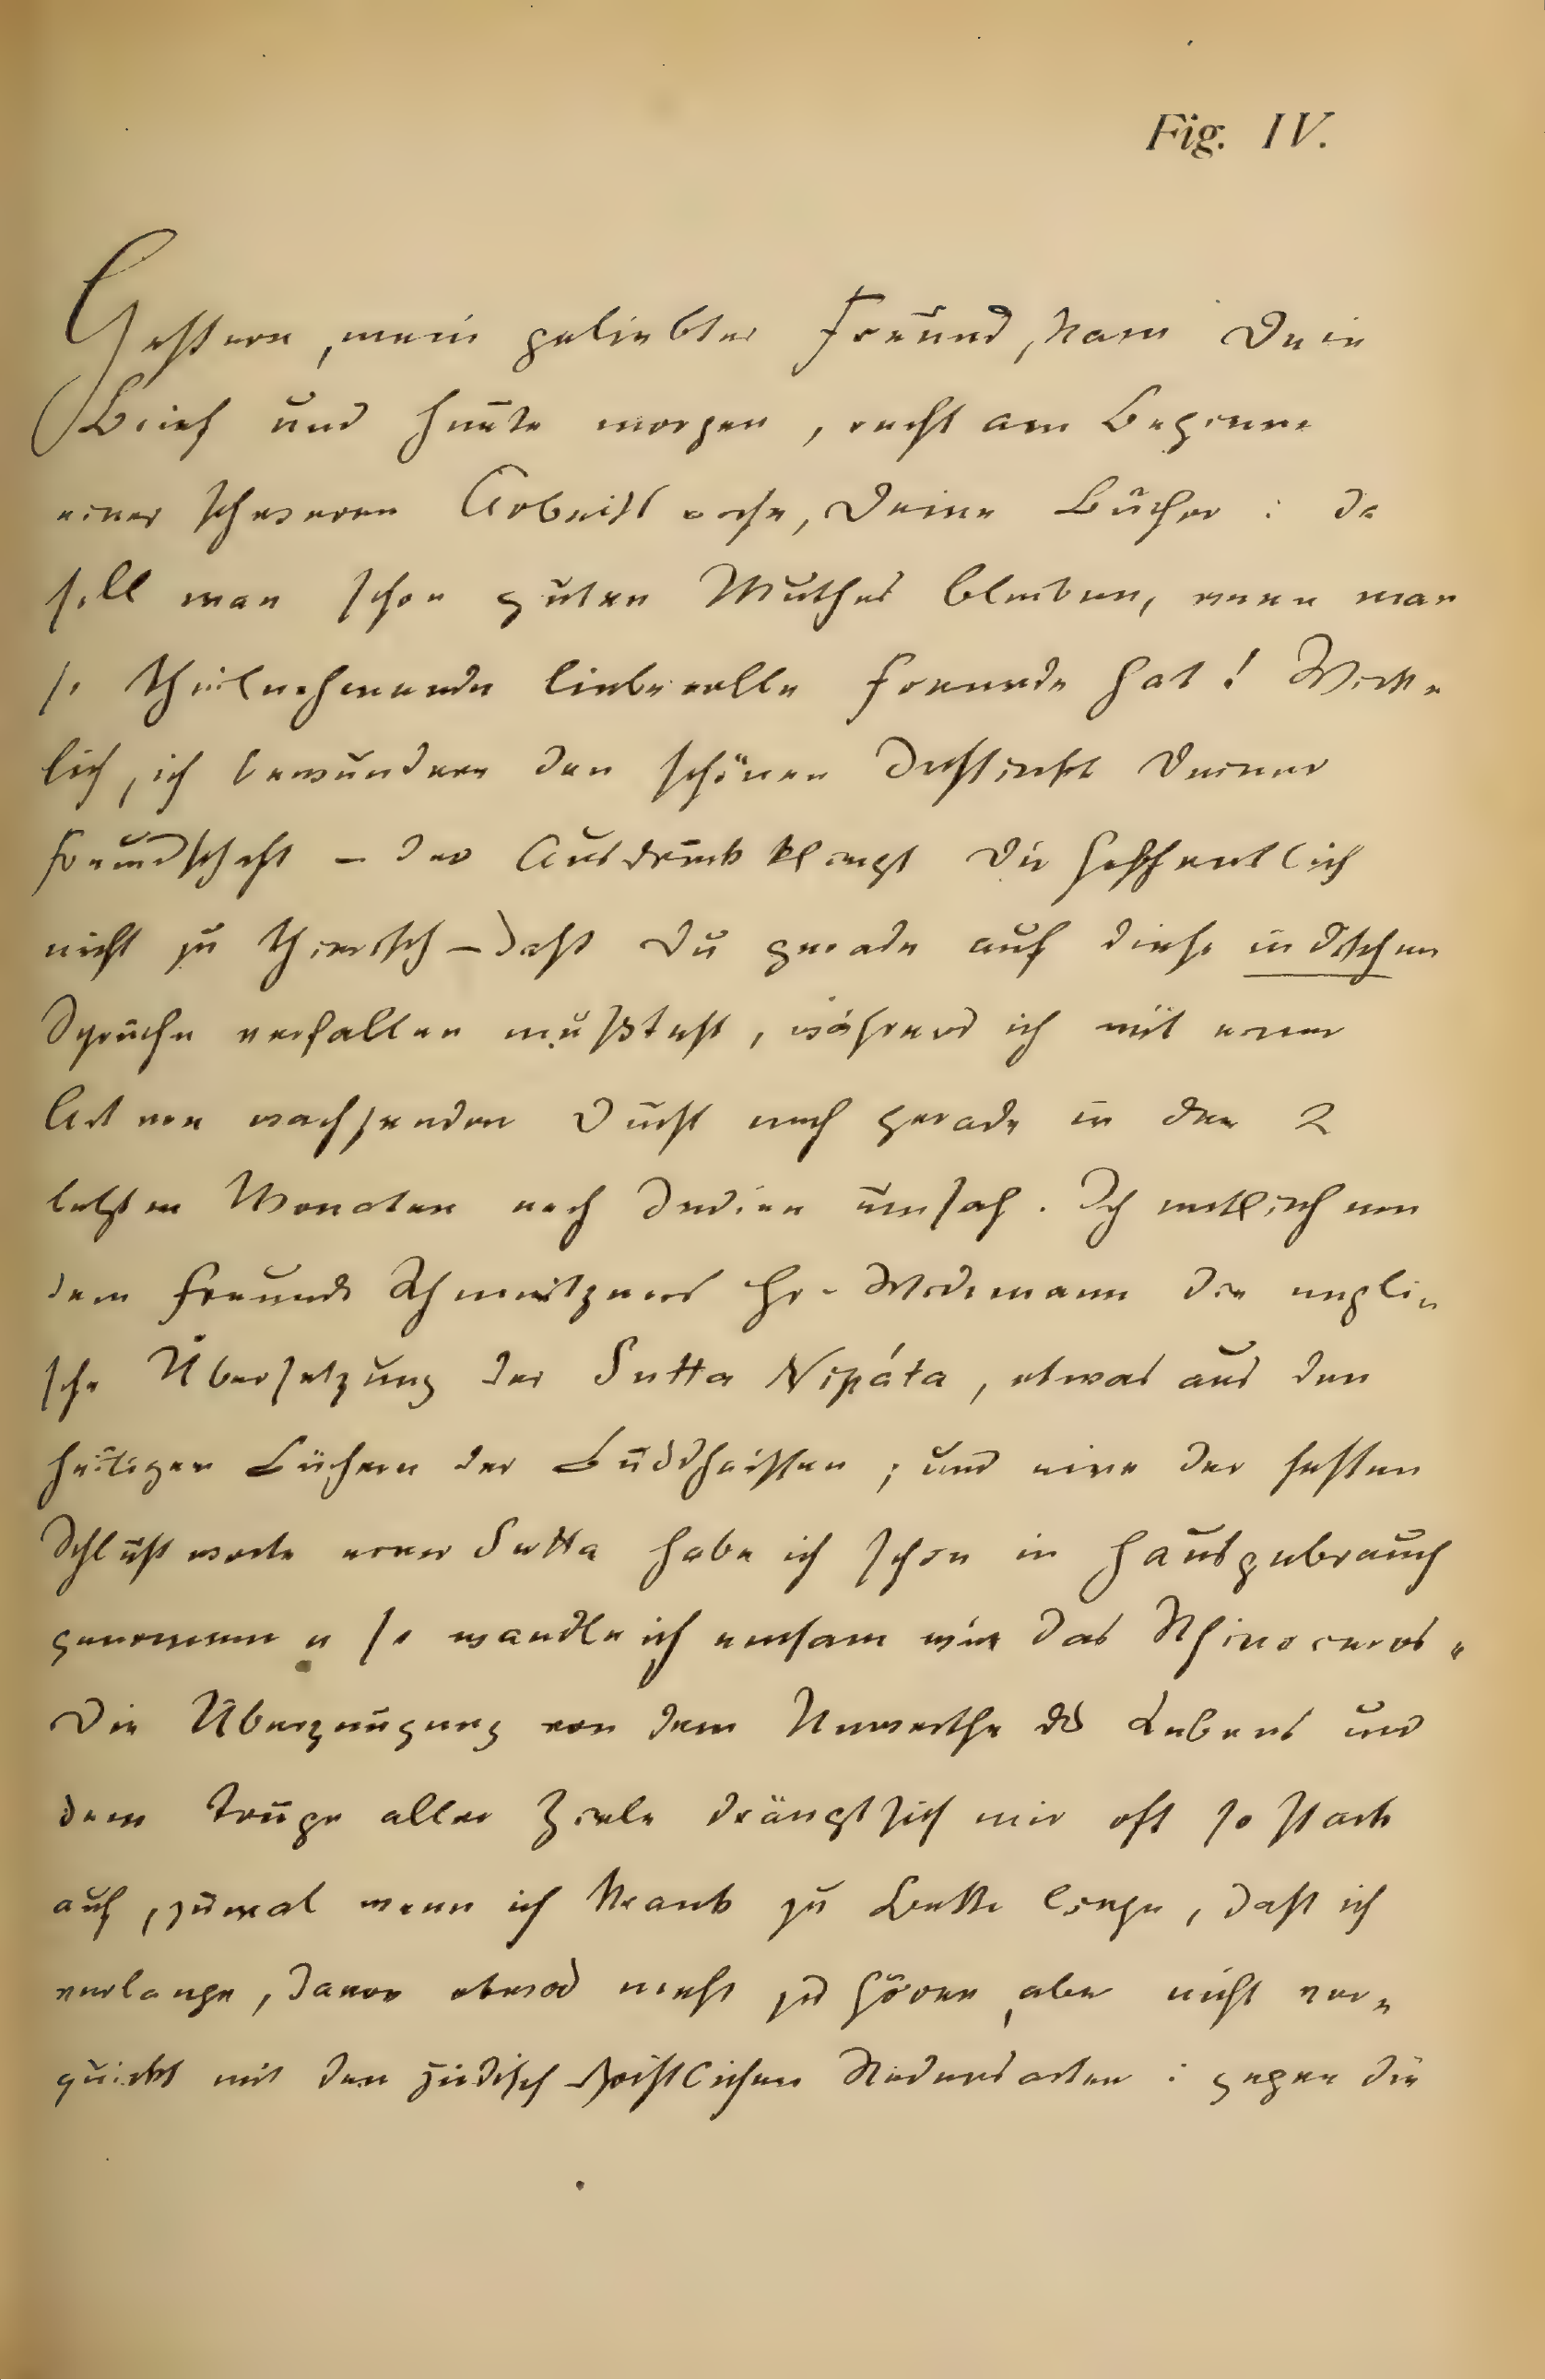 Fig. IV.
Gestern, mein geliebter Freund, kam Dein
Brief und heute morgen, recht am Beginne
einer schweren Arbeitswoche, Deine Bücher: da
soll man schon guten Muthes bleiben, wenn man
so theilnehmende liebevolle Freunde hat! Wirk-
lich, ich bewundere den schönen Instinkt Deiner
Freundschaft — der Ausdruck klingt Dir hoffentlich
nicht zu thierisch — dass Du gerade auf diese indischen
Sprüche verfallen musstest, während ich mit einer
Art von wachsenden Durst mich gerade in den 2
letzten Monaten nach Indien umsah. Ich entlieh von
dem Freunde Schmeitzners Hr. Widemann die engli-
sche Übersetzung der Sutta Nipáta, etwas aus den
heiligen Büchern der Buddhaisten; und eine der festen
Schlussworte einer Sutta habe ich schon in Hausgebrauch
genommen „so wandle ich einsam wie das Rhinoceros“
Die Überzeugung von dem Unwerthe des Lebens und
dem Truge aller Ziele drängt sich mir oft so stark
auf, zumal wenn ich krank zu Bette liege, dass ich
verlange, davon etwas mehr zu hören, aber nicht ver-
quickt mit den jüdisch-christlichen Redensarten: gegen die